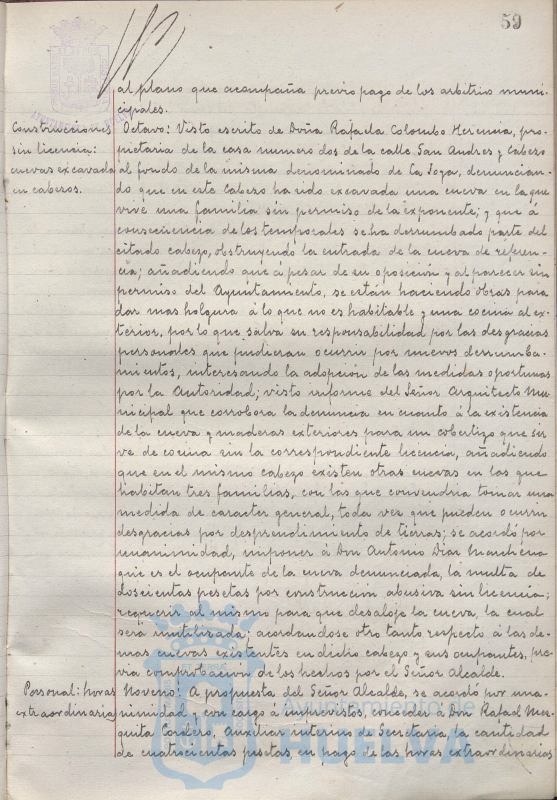 59
al plano que acompaña previo pago de los arbitrios muni-
cipales.
Construcciones
sin licencia:
cuevas excavadas
en cabezos.
Octavo: Visto escrito de Doña Rafaela Colombo Herencia, pro-
pietaria de la casa numero dos de la calle San Andres y Cabezo
al fondo de la misma denominado de La Joya, denuncian-
do que en este Cabezo ha sido excavada una cueva en la que
vive una familia sin permiso de la exponente; y que á
consecuencia de los temporales se ha derrumbado parte del
citado cabezo, obstruyendo la entrada de la cueva de referen-
cia; añadiendo que á pesar de su oposición y al parecer sin
permiso del Ayuntamiento, se están haciendo obras para
dar mas holgura á lo que no es habitable y una cocina al ex-
terior, por lo que salva su responsabilidad por las desgracias
personales que pudieran ocurrir por nuevos derrumba-
mientos, interesando la adopción de las medidas oportunas
por la Autoridad; visto informe del Señor Arquitecto Mu-
nicipal que corrobora la denuncia en cuanto á la existencia
de la cueva y maderas exteriores para un cobertizo que sir-
ve de cocina sin la correspondiente licencia, añadiendo
que en el mismo cabezo existen otras cuevas en las que
habitan tres familias, con las que convendria tomar una
medida de caracter general, toda vez que pueden ocurrir
desgracias por desprendimiento de tierras; se acordó por
unanimidad, imponer á Don Antonio Diaz
que es el ocupante de la cueva denunciada, la multa de
doscientas pesetas por construcción abusiva sin licencia;
requerir al mismo para que desaloje la cueva, la cual
será inutilizada; acordandose otro tanto respecto á las de-
mas cuevas existentes en dicho cabezo y sus ocupantes, pre-
via comprobacion de los hechos por el Señor Alcalde.
Personal: horas
extraordinarias
Noveno: A propuesta del Señor Alcalde, se acordó por una-
nimidad y con cargo á imprevistos, conceder á Don Rafael Mez-
quita Cordero, Auxiliar interino de Secretaria, la cantidad
de cuatrocientas pesetas en pago de las horas extraordinarias
Ayuntamiento de
HUELVA